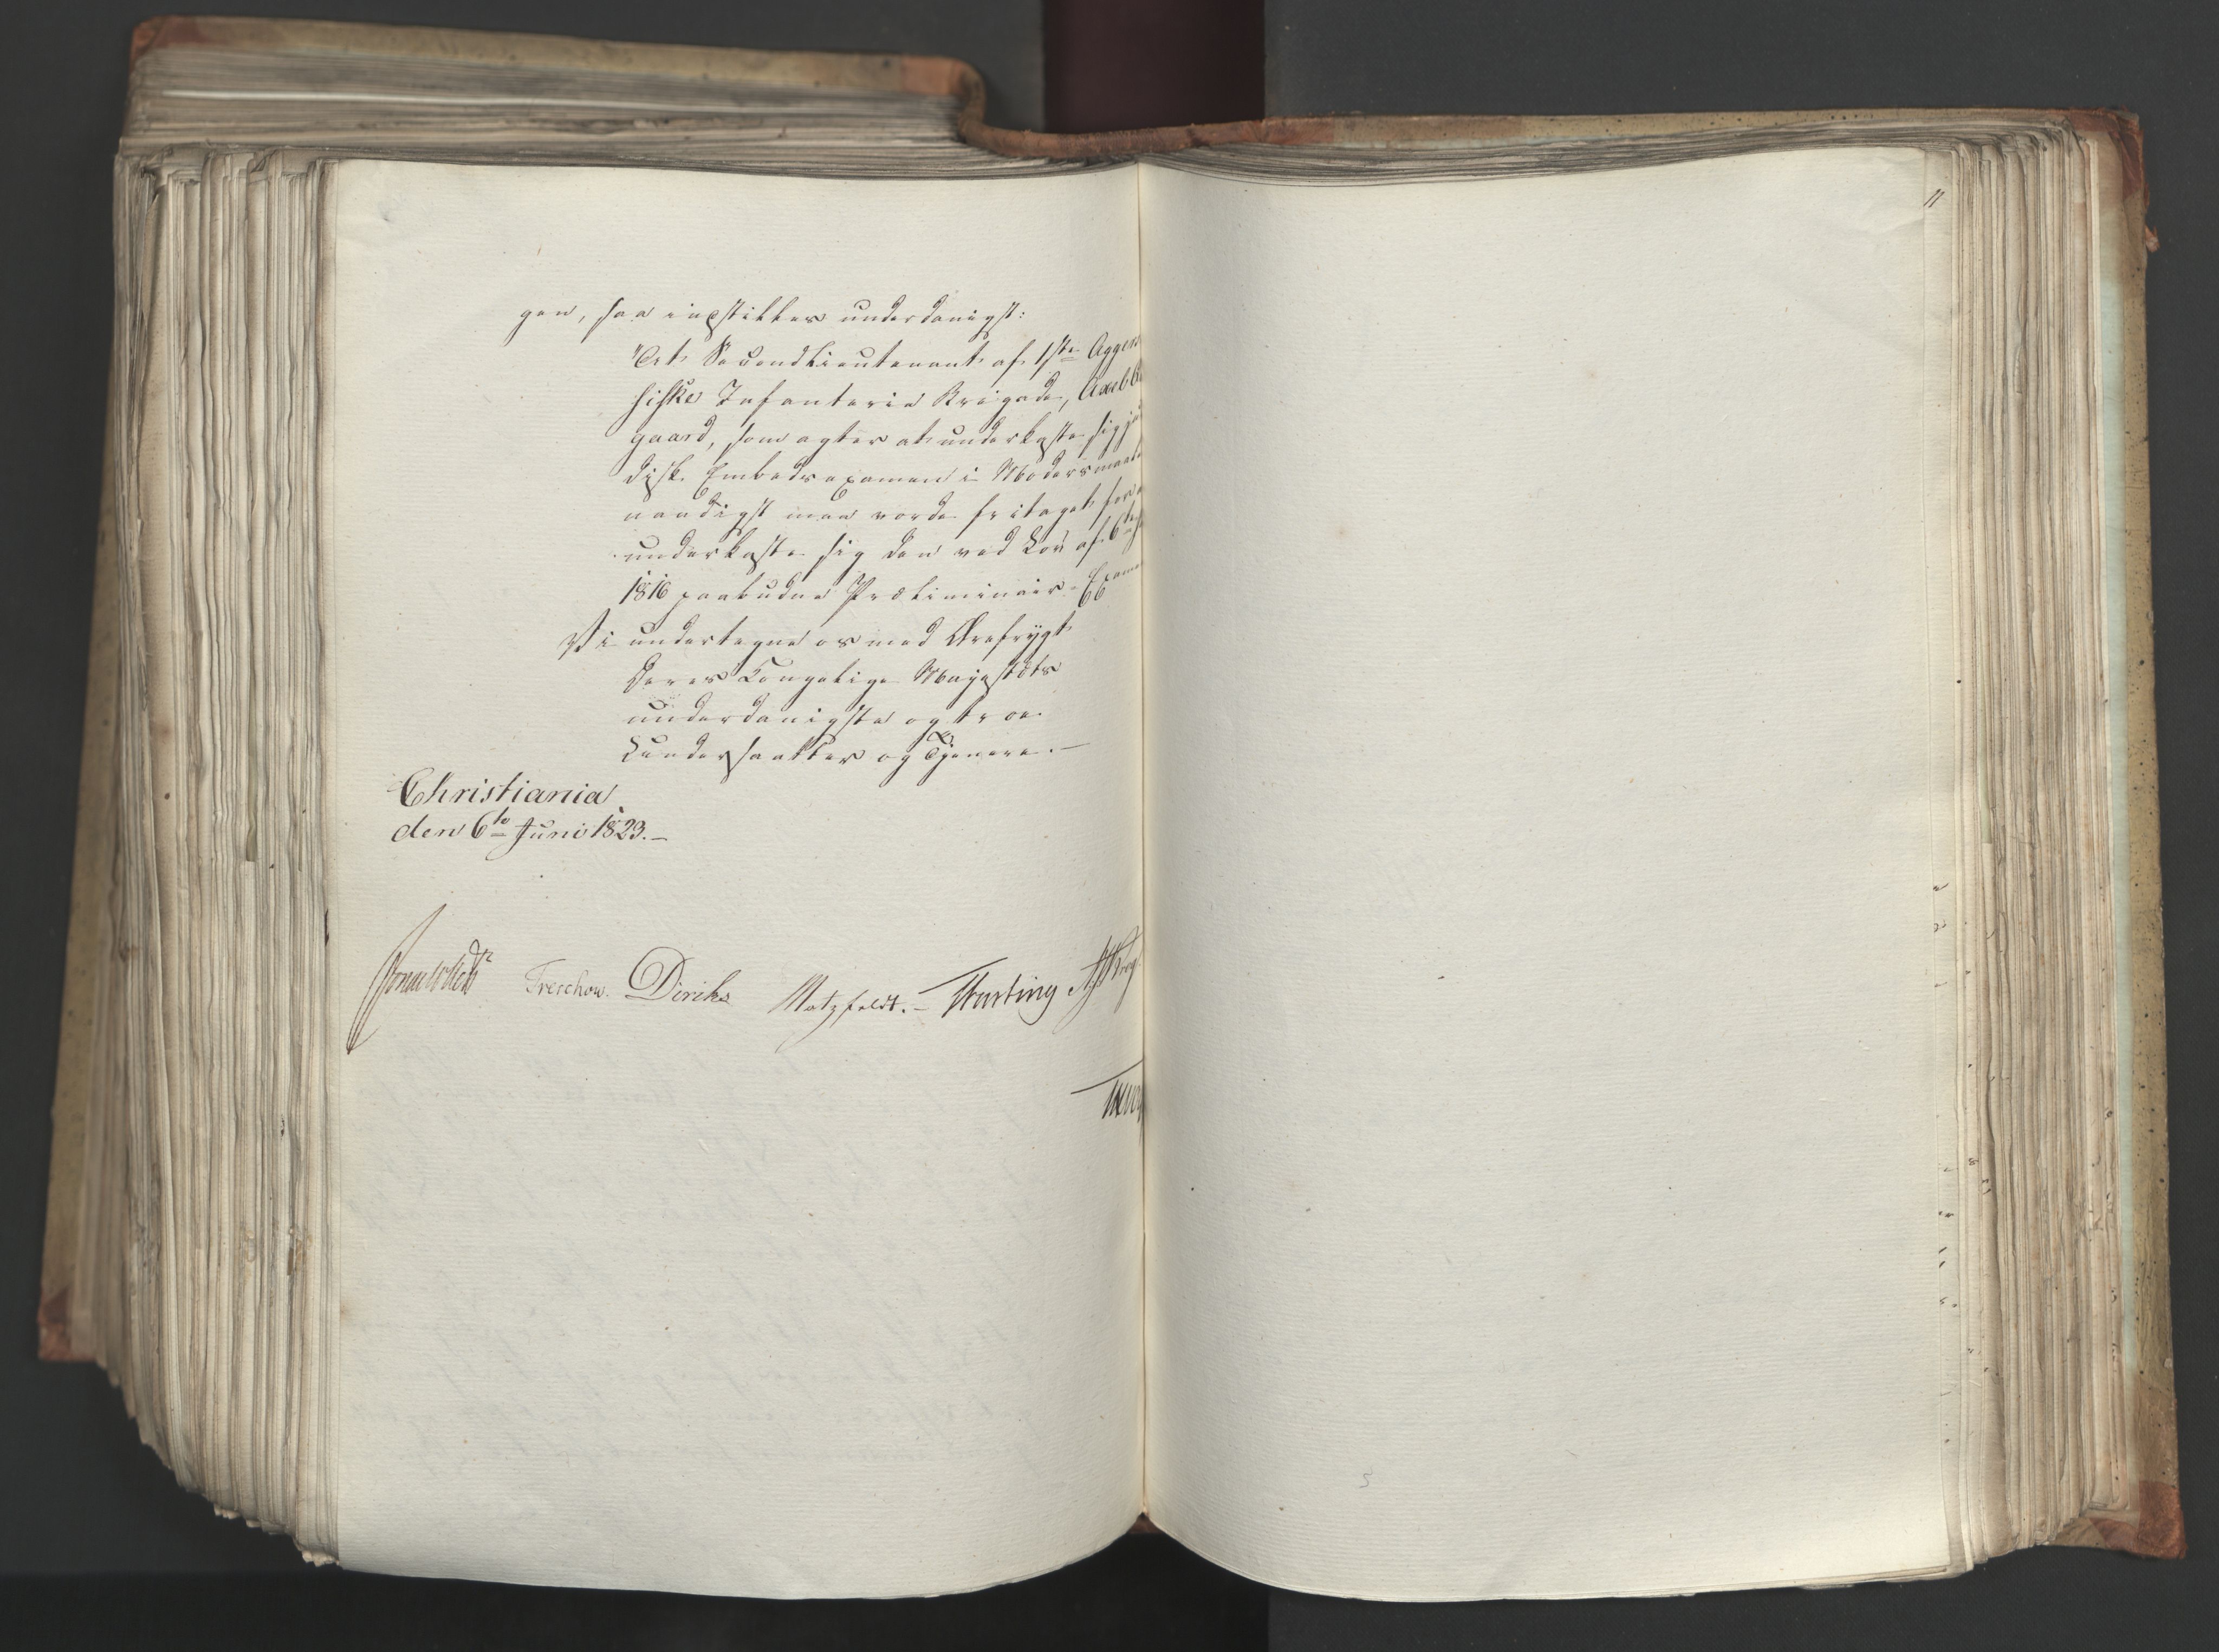 gen, saa indstilles underdanigst:
"At Secondlieutenant af 1ste Agger
siske Infanterie Brigade, Axel
gaard, som agter at underkaste sig
disk Embedsexamen i Modersmaal
naadigst maa vorde fritaget for
underkaste sig den ved Lov af 6te
1816 paabudne Præliminair-Exame
Vi undertegne os med Ærefrygt
Deres Kongelige Majestæts
underdanigste og troe
Undersaatter og Tjenere.—
Christiania
den 6te Juni 1823.—
Treschow. Diriks Motzfeldt.—
11